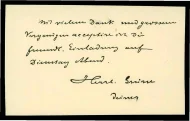 Mit vielem Dank und grossem
Vergnügen acceptire ich die
freundl. Einladung auf
Dienstag Abend.
Herzl.